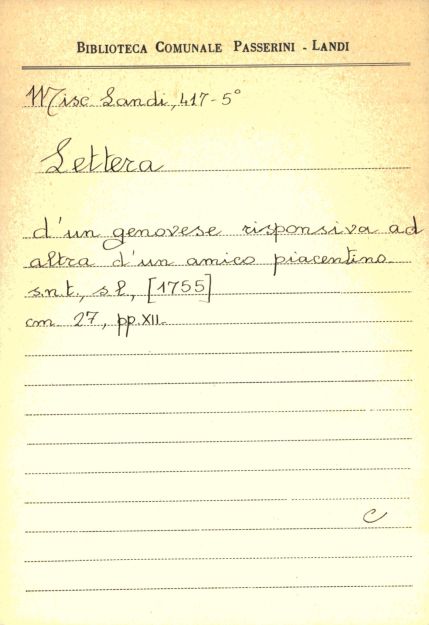 BIBLIOTECA COMUNALE PASSERINI - LANDI
Misc. Landi, 417-5°
Lettera
d'un genovese risponsiva ad
altra d'un amico piacentino.
s.n.t., s.l., [1755]
cm 27, pp. XII.
C